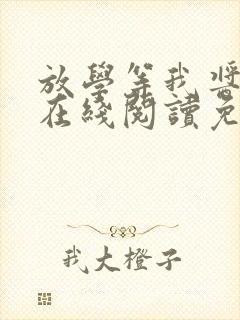 放學等我 醬
在綫閱讀免
我大橙子